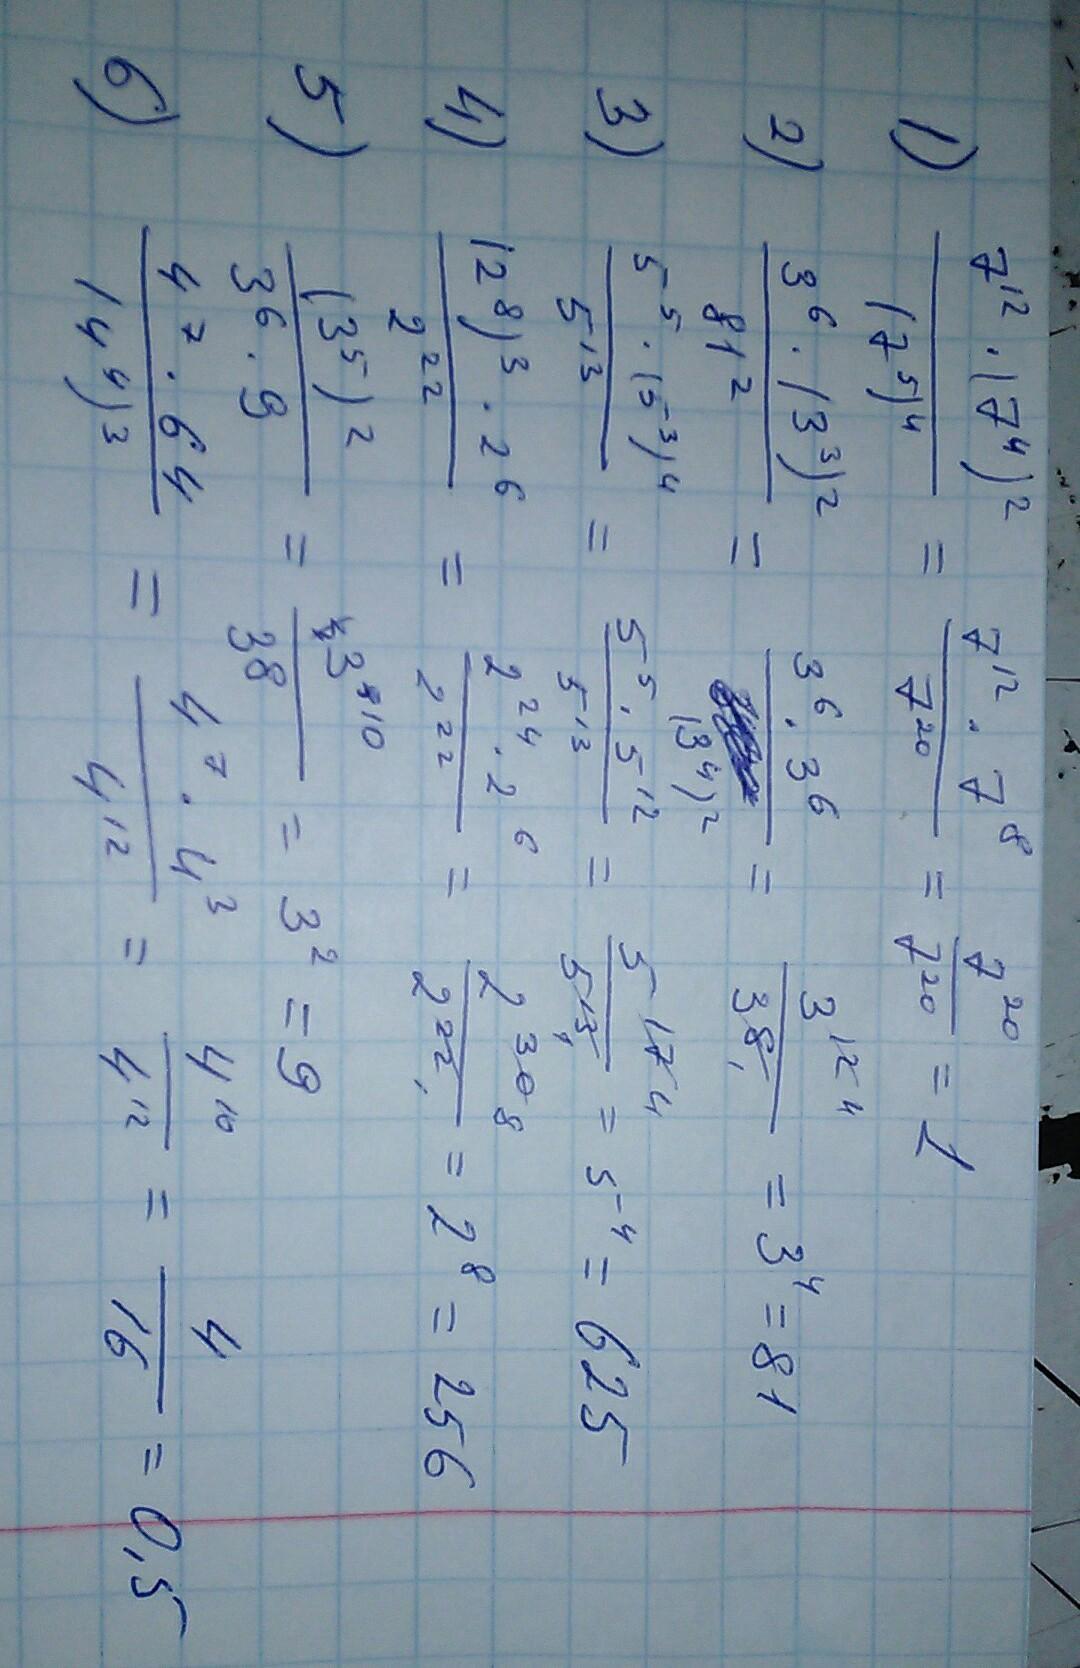 1) (7¹² · (7⁴)²) / (7⁵)⁴ = (7¹² · 7⁸) / 7²⁰ = 7²⁰ / 7²⁰ = 1
2) (3⁶ · (3³)²) / 81² = (3⁶ · 3⁶) / (3⁴)² = 3¹² ⁴ / 3⁸ = 3⁴ = 81
3) (5⁵ · (5⁻³)⁴) / 5¹³ = (5⁵ · 5¹²) / 5¹³ = 5¹⁷ ⁴ / 5¹³ = 5⁻⁴ = 625
4) ((2⁸)³ · 2⁶) / 2²² = (2²⁴ · 2⁶) / 2²² = 2³⁰ ⁸ / 2²² = 2⁸ = 256
5) (3⁵)² / (3⁶ · 9) = 3¹⁰ / 3⁸ = 3² = 9
6) (4⁷ · 64) / (4⁴)³ = (4⁷ · 4³) / 4¹² = 4¹⁰ / 4¹² = 4 / 16 = 0,5